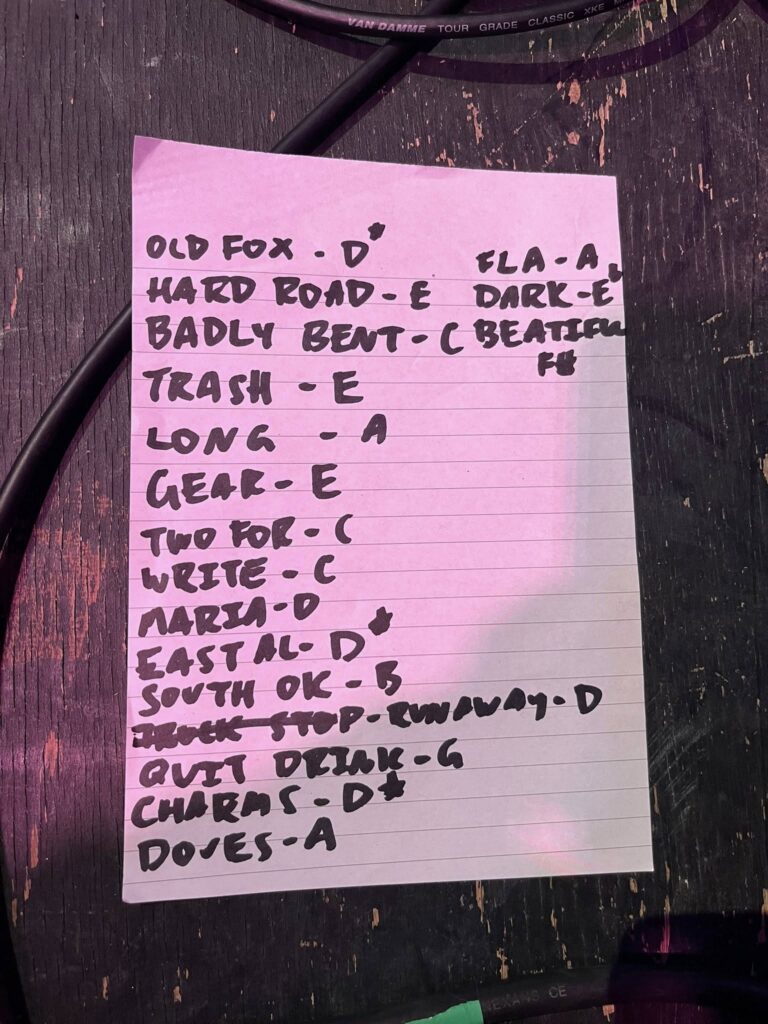 VAN DAMME TOUR GRADE CLASSIC XKE
OLD FOX - D#
HARD ROAD - E
BADLY BENT - C
TRASH - E
LONG - A
GEAR - E
TWO FOR - C
WRITE - C
MARIA - D
EAST AL - D#
SOUTH OK - B
TRUCK STOP - RUNAWAY - D
QUIT DRINK - G
CHARMS - D#
DOVES - A
FLA - A
DARK - Eb
BEATIFUL
F#
CE